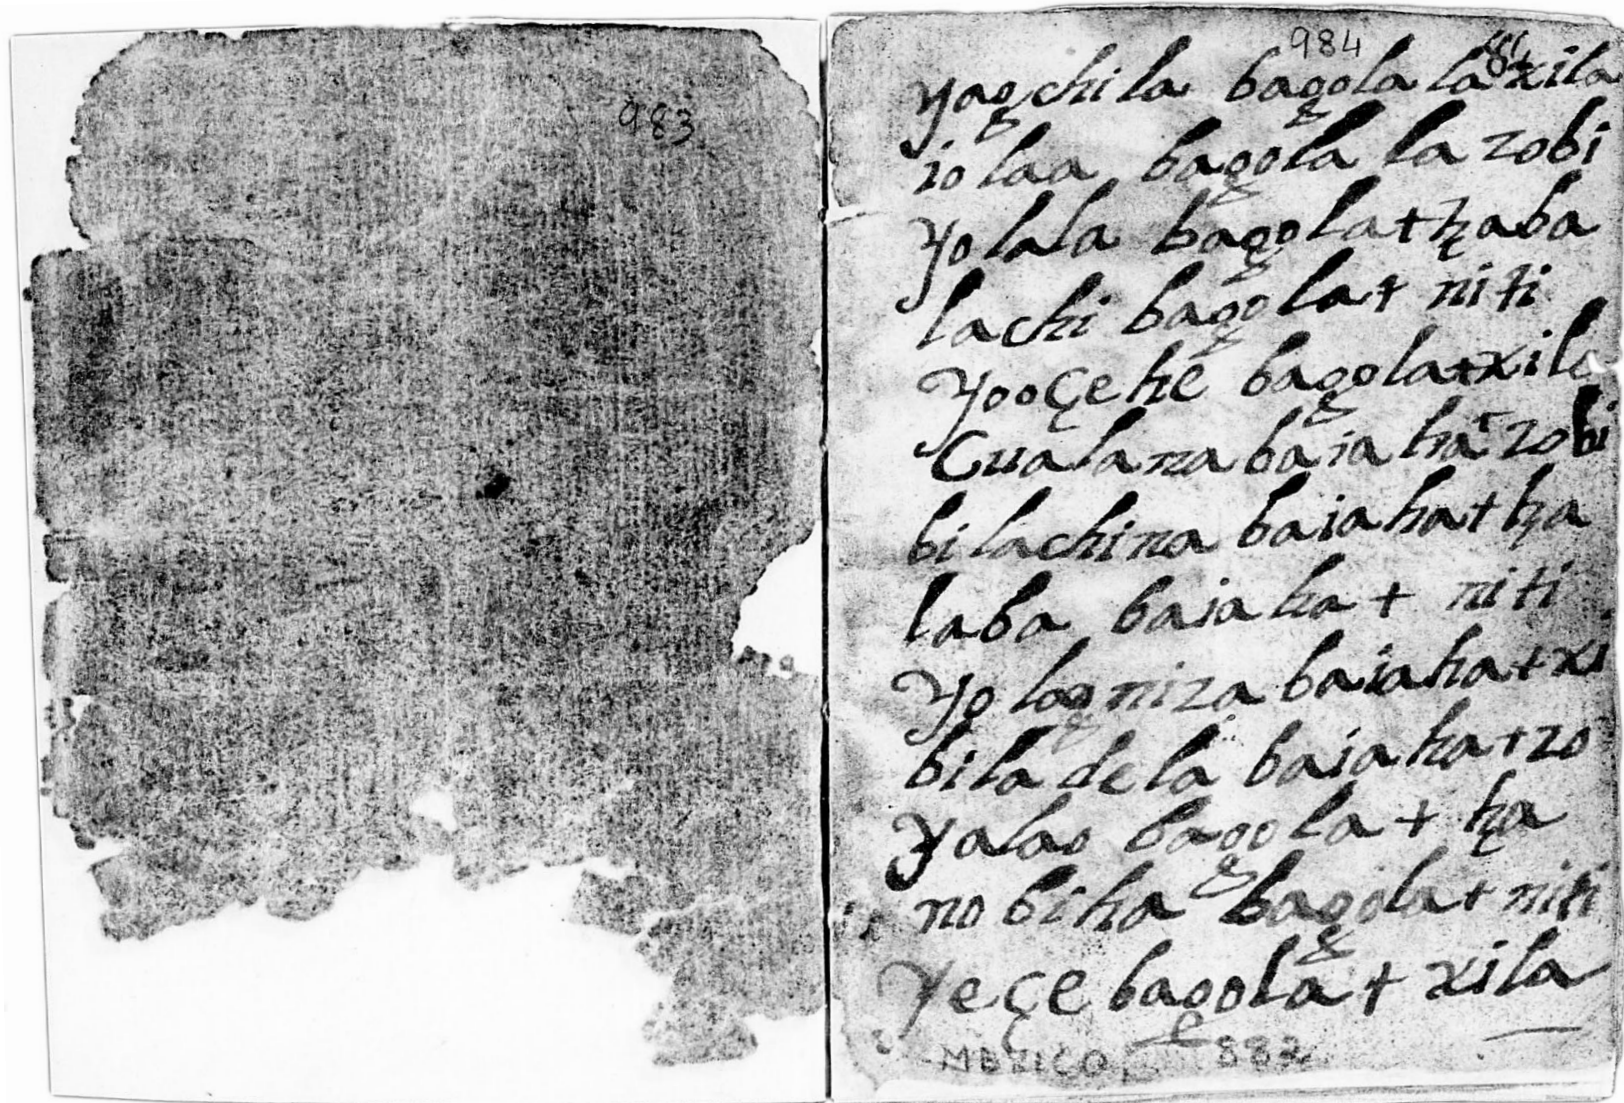 983
984
yagchila bagola la xila
iolaa bagola la zobi
yolala bagola + tzaba
lachi bagola + niti
yooçehe bagola + xila
Cualana baiaha + zobi
bilachina baiaha + tza
laba baiaha + niti
yolagniza baiaha + xi
bila dela baiaha + zo
yalao bagola + tza
no biha bagola + niti
yeçe bagola + xila
MEXICO 882